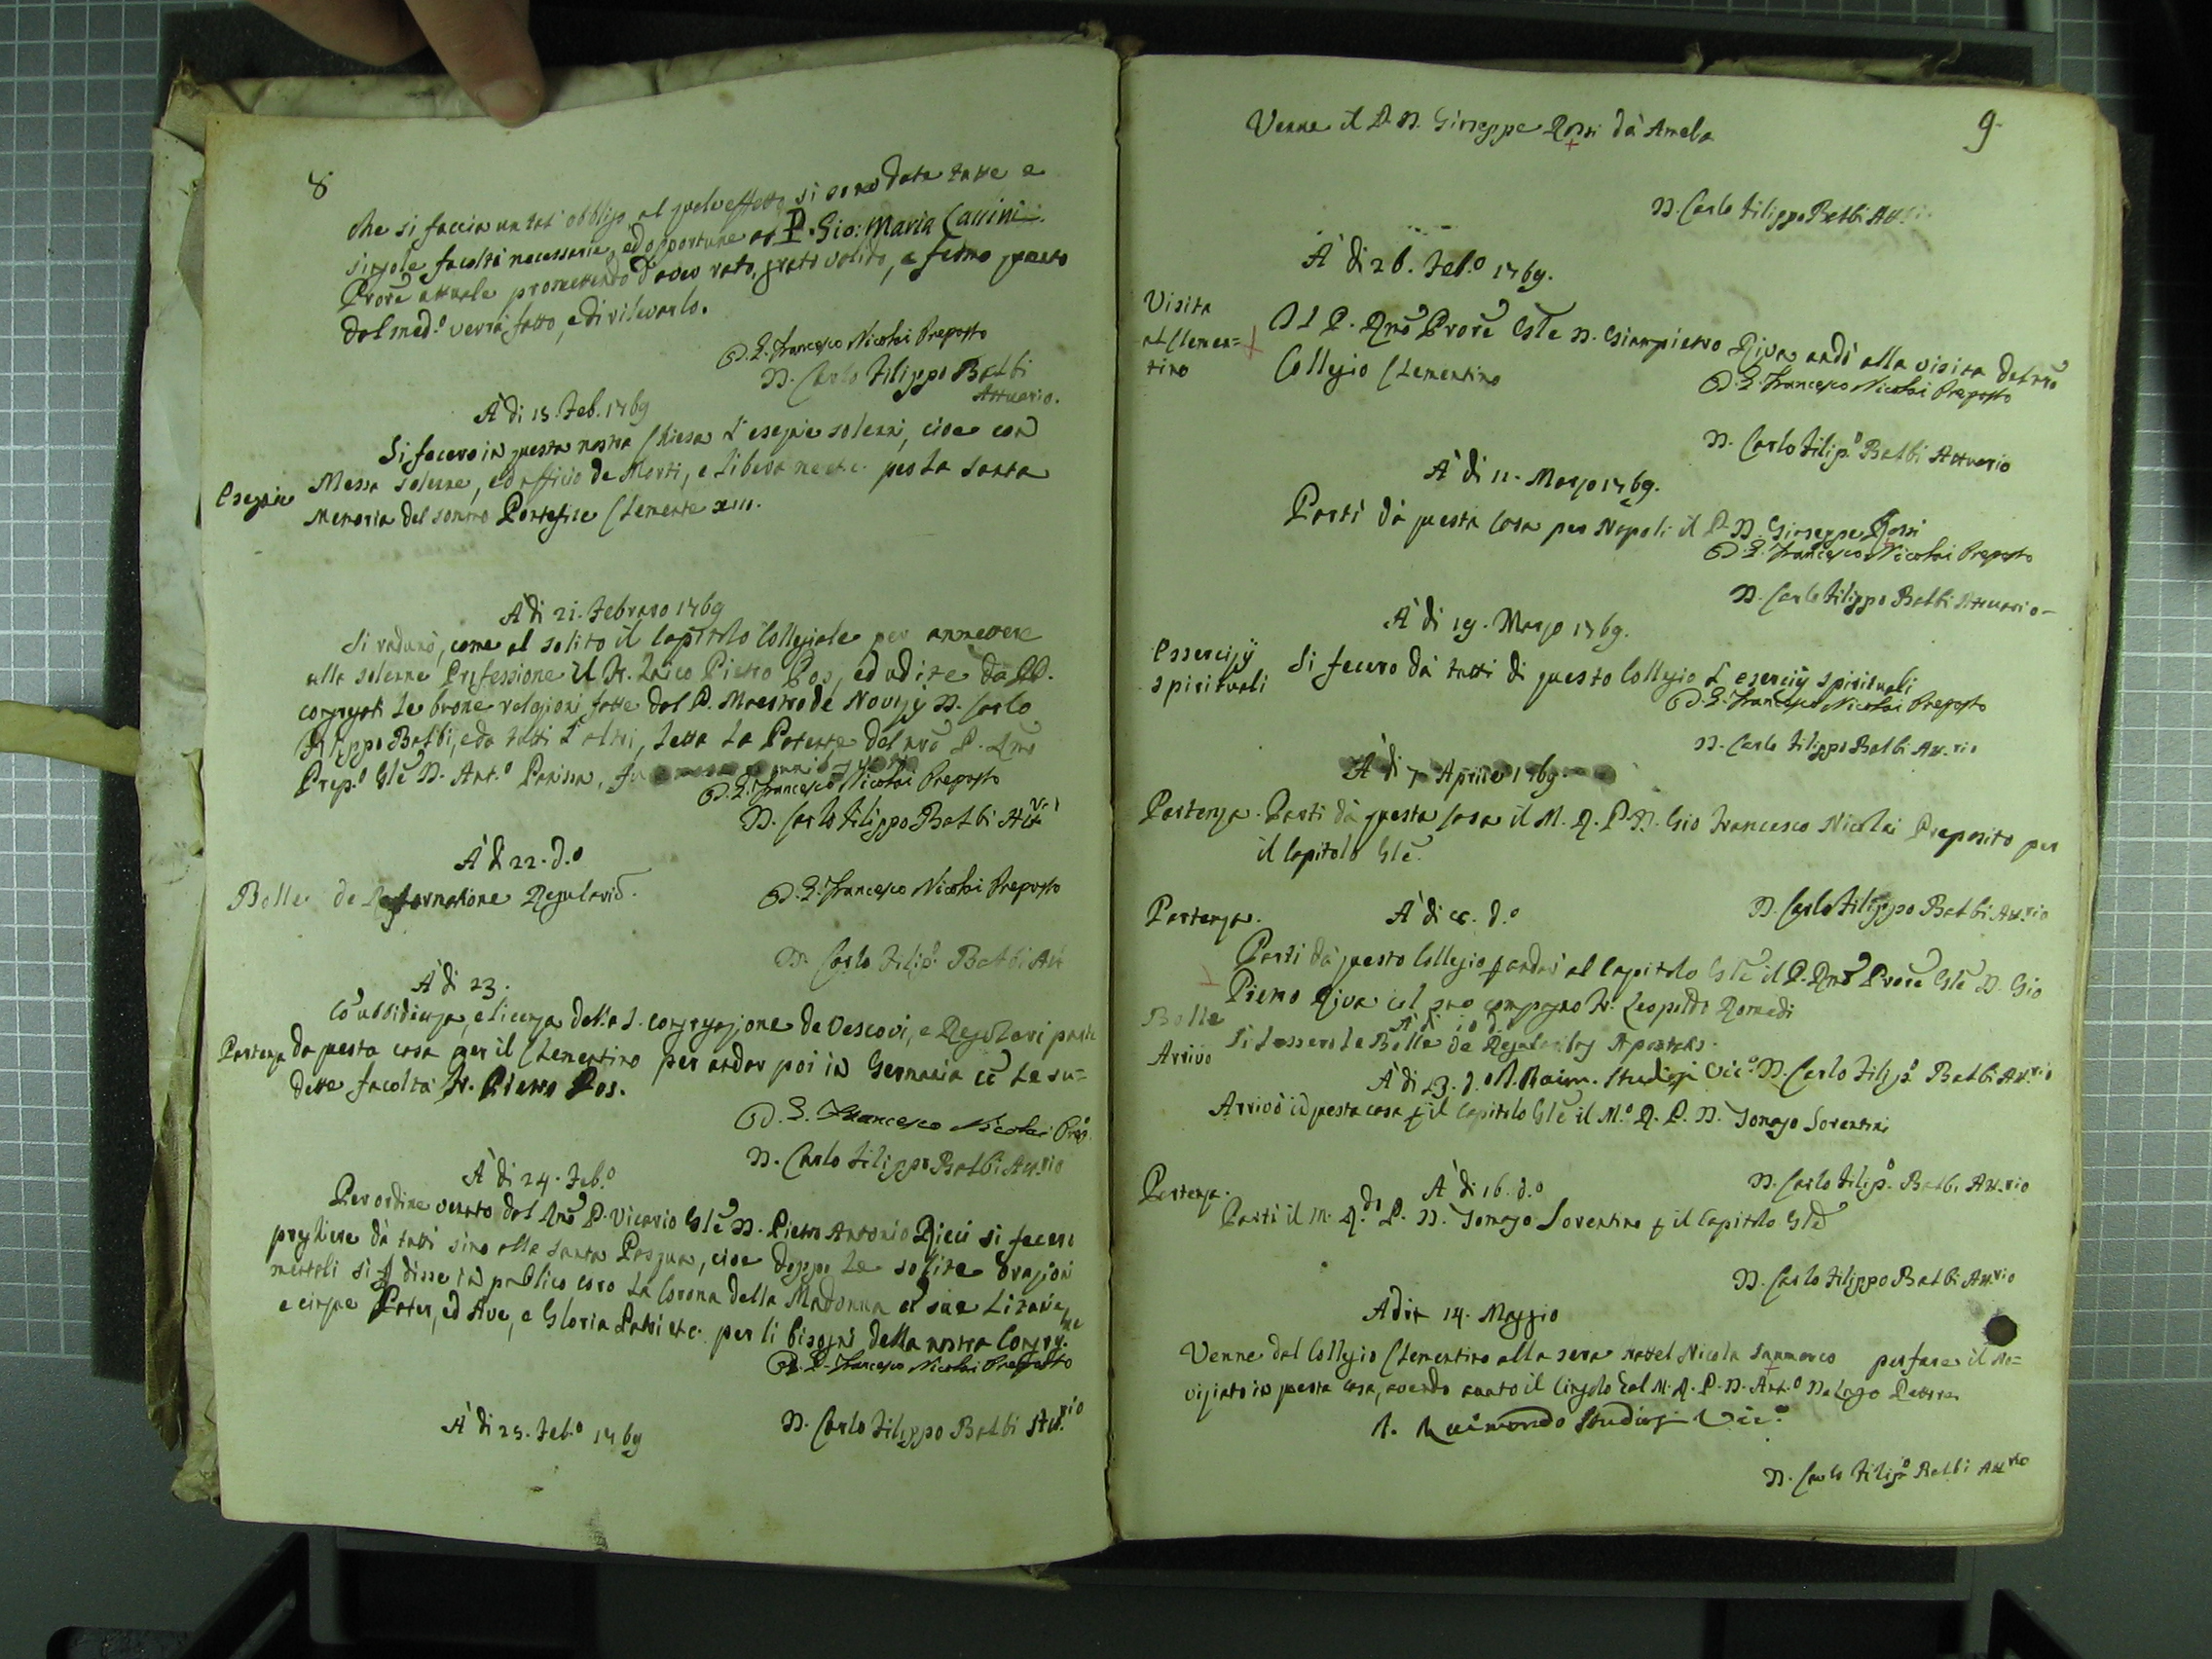 8
che si faccia un tal obbligo al quale effetto si sono date tutte e
singole facoltà necessarie, ed opportune al P. Gio: Maria Cassini
Prore attuale promettendo d'aver rato, grato valido, e fermo quanto
dal med.o verrà fatto, e di rilevarlo.
D. G. Francesco Nicolai Preposto
D. Carlo Filippo Balbi
Attuario.
A dì 15. Feb. 1769
Si fecero in questa nostra Chiesa l'esequie solenni, cioe con
Esequie
Messa solenne, ed officio de Morti, e libera me etc. per la santa
memoria del sommo Pontefice Clemente XIII.
A dì 21. Febraro 1769
Si radunò, come al solito il Capitolo Collegiale per ammettere
alla solenne Professione il Fr. Laico Pietro Pos, ed udite da PP.
congregati le buone relazioni fatte dal P. Maestro de Novizj D. Carlo
Filippo Balbi, e da tutti l'altri, letta la Patente del nro P. Rmo
Prep.o Gle D. Ant.o Panissa, fu
D. G. Francesco Nicolai Preposto
D. Carlo Filippo Balbi Att.
A dì 22. d.o
Bolle de Reformatione Regulariu.
D. G. Francesco Nicolai Preposto
D. Carlo Filip.o Balbi Att
A dì 23.
Co ubbidienza, e licenza della S. congregazione de Vescovi, e Regolari parti
Partenza
da questa casa per il Clementino per andar poi in Germania co le su=
dette facoltà Fr. Pietro Pos.
D. G. Francesco Nicolai Prep.
D. Carlo Filippo Balbi Att.rio
A dì 24. Feb.o
Per ordine venuto dal Rmo P. Vicario Gle D. Pietro Antonio Ricci si fecero
preghiere da tutti sino alla santa Pasqua, cioe doppo le solite orazioni
mentali si disse in publico coro la Corona della Madonna co sue Litanie,
e cinque Pater, ed Ave, e Gloria Patri etc. per li bisogni della nostra Congreg.ne
D. G. Francesco Nicolai Preposto
D. Carlo Filippo Balbi Att.rio
A dì 25. Feb.o 1769
9
Venne il P. D. Giuseppe Rossi da Amelia
D. Carlo Filippo Balbi Att.
A dì 26. Feb.o 1769.
Visita
al Clemen=
tino
Il P. Rmo Prore Gle D. Gianpietro Riva andò alla visita del nro
Collegio Clementino
D. G. Francesco Nicolai Preposto
D. Carlo Filip.o Balbi Attuario
A dì 11. Marzo 1769.
Partì da questa Casa per Napoli il P. D. Giuseppe Rossi
D. G. Francesco Nicolai Preposto
D. Carlo Filippo Balbi Attuario
A dì 19. Marzo 1769.
Essercizij
spirituali
Si fecero da tutti di questo Collegio l'esercizij spirituali
D. G. Francesco Nicolai Preposto
D. Carlo Filippo Balbi Att.rio
A dì 7 Aprile 1769
Partenza. Partì da questa Casa il M. R. P. D. Gio Francesco Nicolai Preposito per
il Capitolo Gle.
D. Carlo Filippo Balbi Att.rio
Partenza.
A dì d.o
Partì da questo Collegio p andar al Capitolo Gle il P. Rmo Prore Gle D. Gio
Pietro Riva col suo compagno Fr. Leopoldo Romedi
Bolle
A dì 10 d.
Si lessero le Bolle de Apostatis.
Arrivo
A dì 13. d.o D. Raim. Studiosi Vic.o D. Carlo Filip.o Balbi Att.rio
Arrivò in questa casa p il Capitolo Gle il M.o R. P. D. Tomazo Sorentini
D. Carlo Filip.o Balbi Att.rio
Partenza.
A dì 16. d.o
Partì il M. R.do P. D. Tomazo Sorentino p il Capitolo Gle
D. Carlo Filippo Balbi Att.rio
A dì 14. Maggio
Venne dal Collegio Clementino alla sera Nicola Sanmarco per fare il no=
viziato in questa casa, avendo avuto il cingolo dal M. R. P. D. Ant.o Rettore
D. Raimondo Studiosi Vic.o
D. Carlo Filip.o Balbi Att.rio